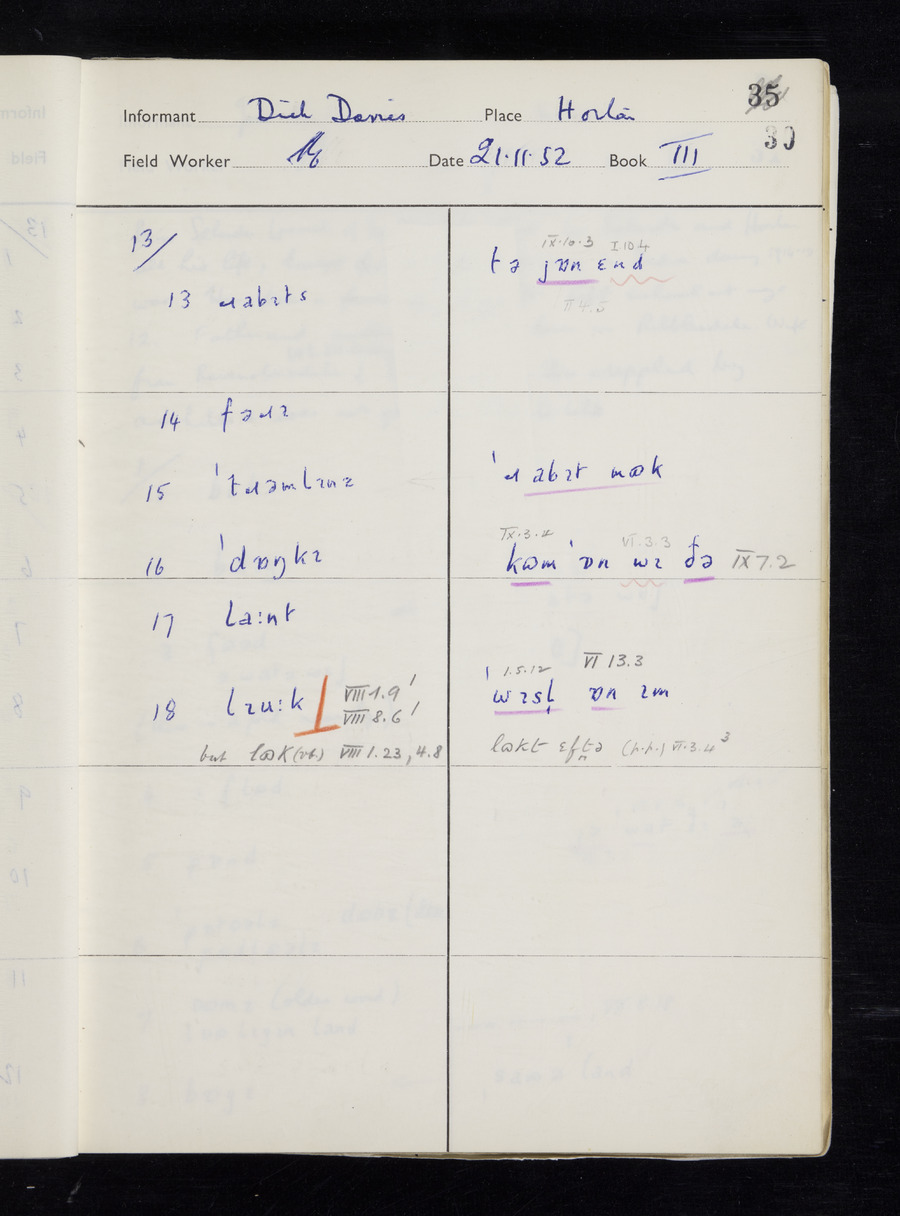 35
30
Informant Dick Davies Place Horton
Field Worker Date 21.11.52 Book III
13/
IX.10.3 I 10.4
tə jɒn ɛnd
II 4.5
13 ɹabɪts
14 fəɹɪ
15 ˈtɹamlɪnz
ˈɹabɪt nɷk
16 ˈdɒŋkɪ
IX.3.4 VI.3.3
kɷm ˈɒn wɪ ðə IX 7.2
17 la:nt
18 lɪu:k VIII 1.9
VIII 8.6
1.5.12 VI 13.3
wɪsl̩ ɒn ɪm
but lɷk (vb) VIII 1.23, 4.8
lɷkt ɛftə (p.p.) VI.3.4³